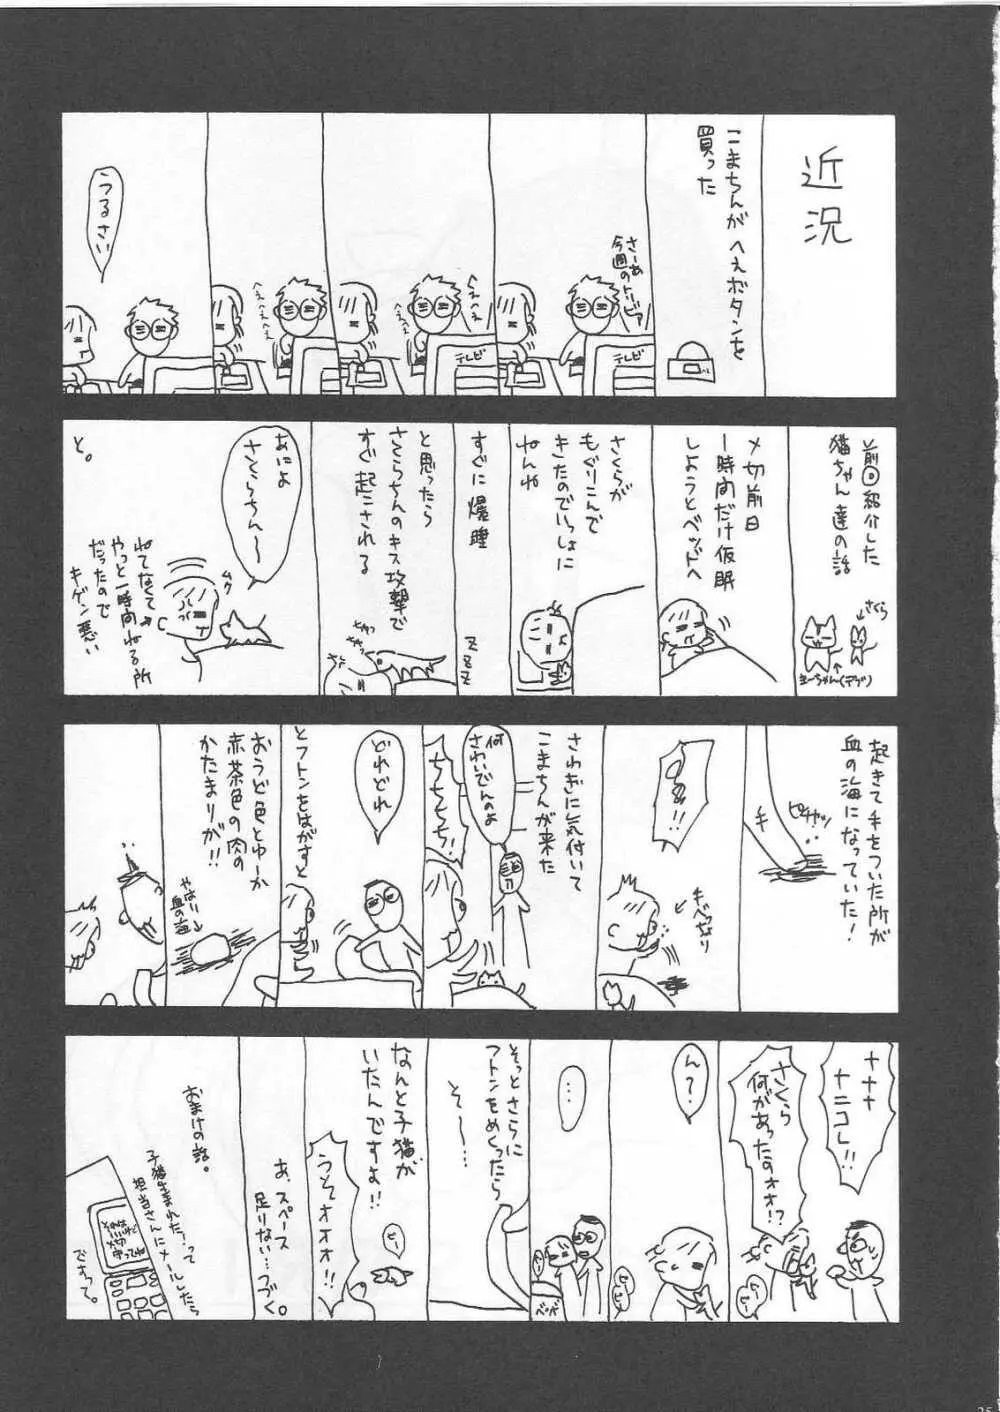 近況
こまちんがへぇボタンを
買った
さーあ
今週のトリビア
テレビ
へぇへぇ
テレビ
へぇへぇへぇ
へぇへぇへぇ
うるさい
前回紹介した
猫ちゃん達の話
さくら
まーちゃん(デブ)
〆切前日
一時間だけ仮眠
しようとベッドへ
さくらが
もぐりこんで
きたのでいっしょに
ねんね
すぐに爆睡
ZZZ
と思ったら
さくらちんのキス攻撃で
すぐ起こされる
あによ
さくらちん〜
ムク
ねてなくて
やっと一時間ねる所
だったので
キゲン悪い
と。
起きて手をついた所が
血の海になっていた!
ピチャッ
手
!!
ギャべなり
さわぎに気付いて
こまちんが来た
何
さわいでんのよ
ちちちち!
どれどれ
とフトンをはがすと
おうど色とゆーか
赤茶色の肉の
かたまりが!!
やはり
血の海
ナナナ
ナニコレ!!
さくら
何があったのォォ!?
ピーピー
ん?
ピーピー
…
ベッド
そっとさらに
フトンをめくったら
そ〜…
なんと子猫が
いたんですよ!!
ピー
うっそォォォ!!
あ、スペース
足りない…つづく。
おまけの話。
子猫生まれた!って
担当さんにメールしたら
ですって。